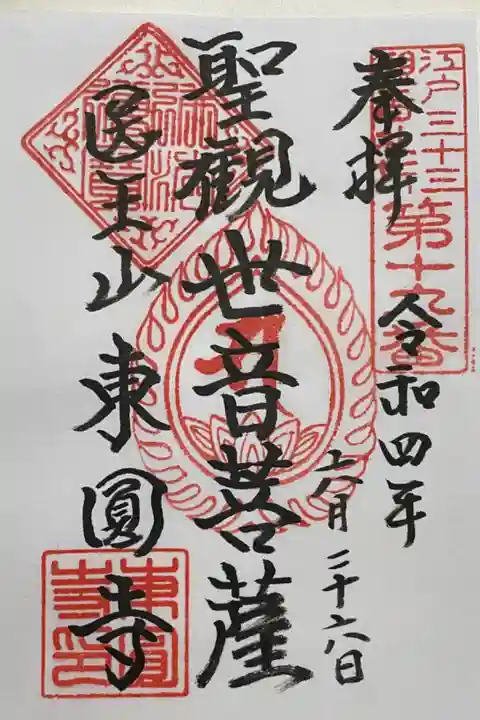 江戸三十三
第十九番
奉拝
令和四年
六月二十六日
聖観世音菩薩
医王山東圓寺
東圓
寺印